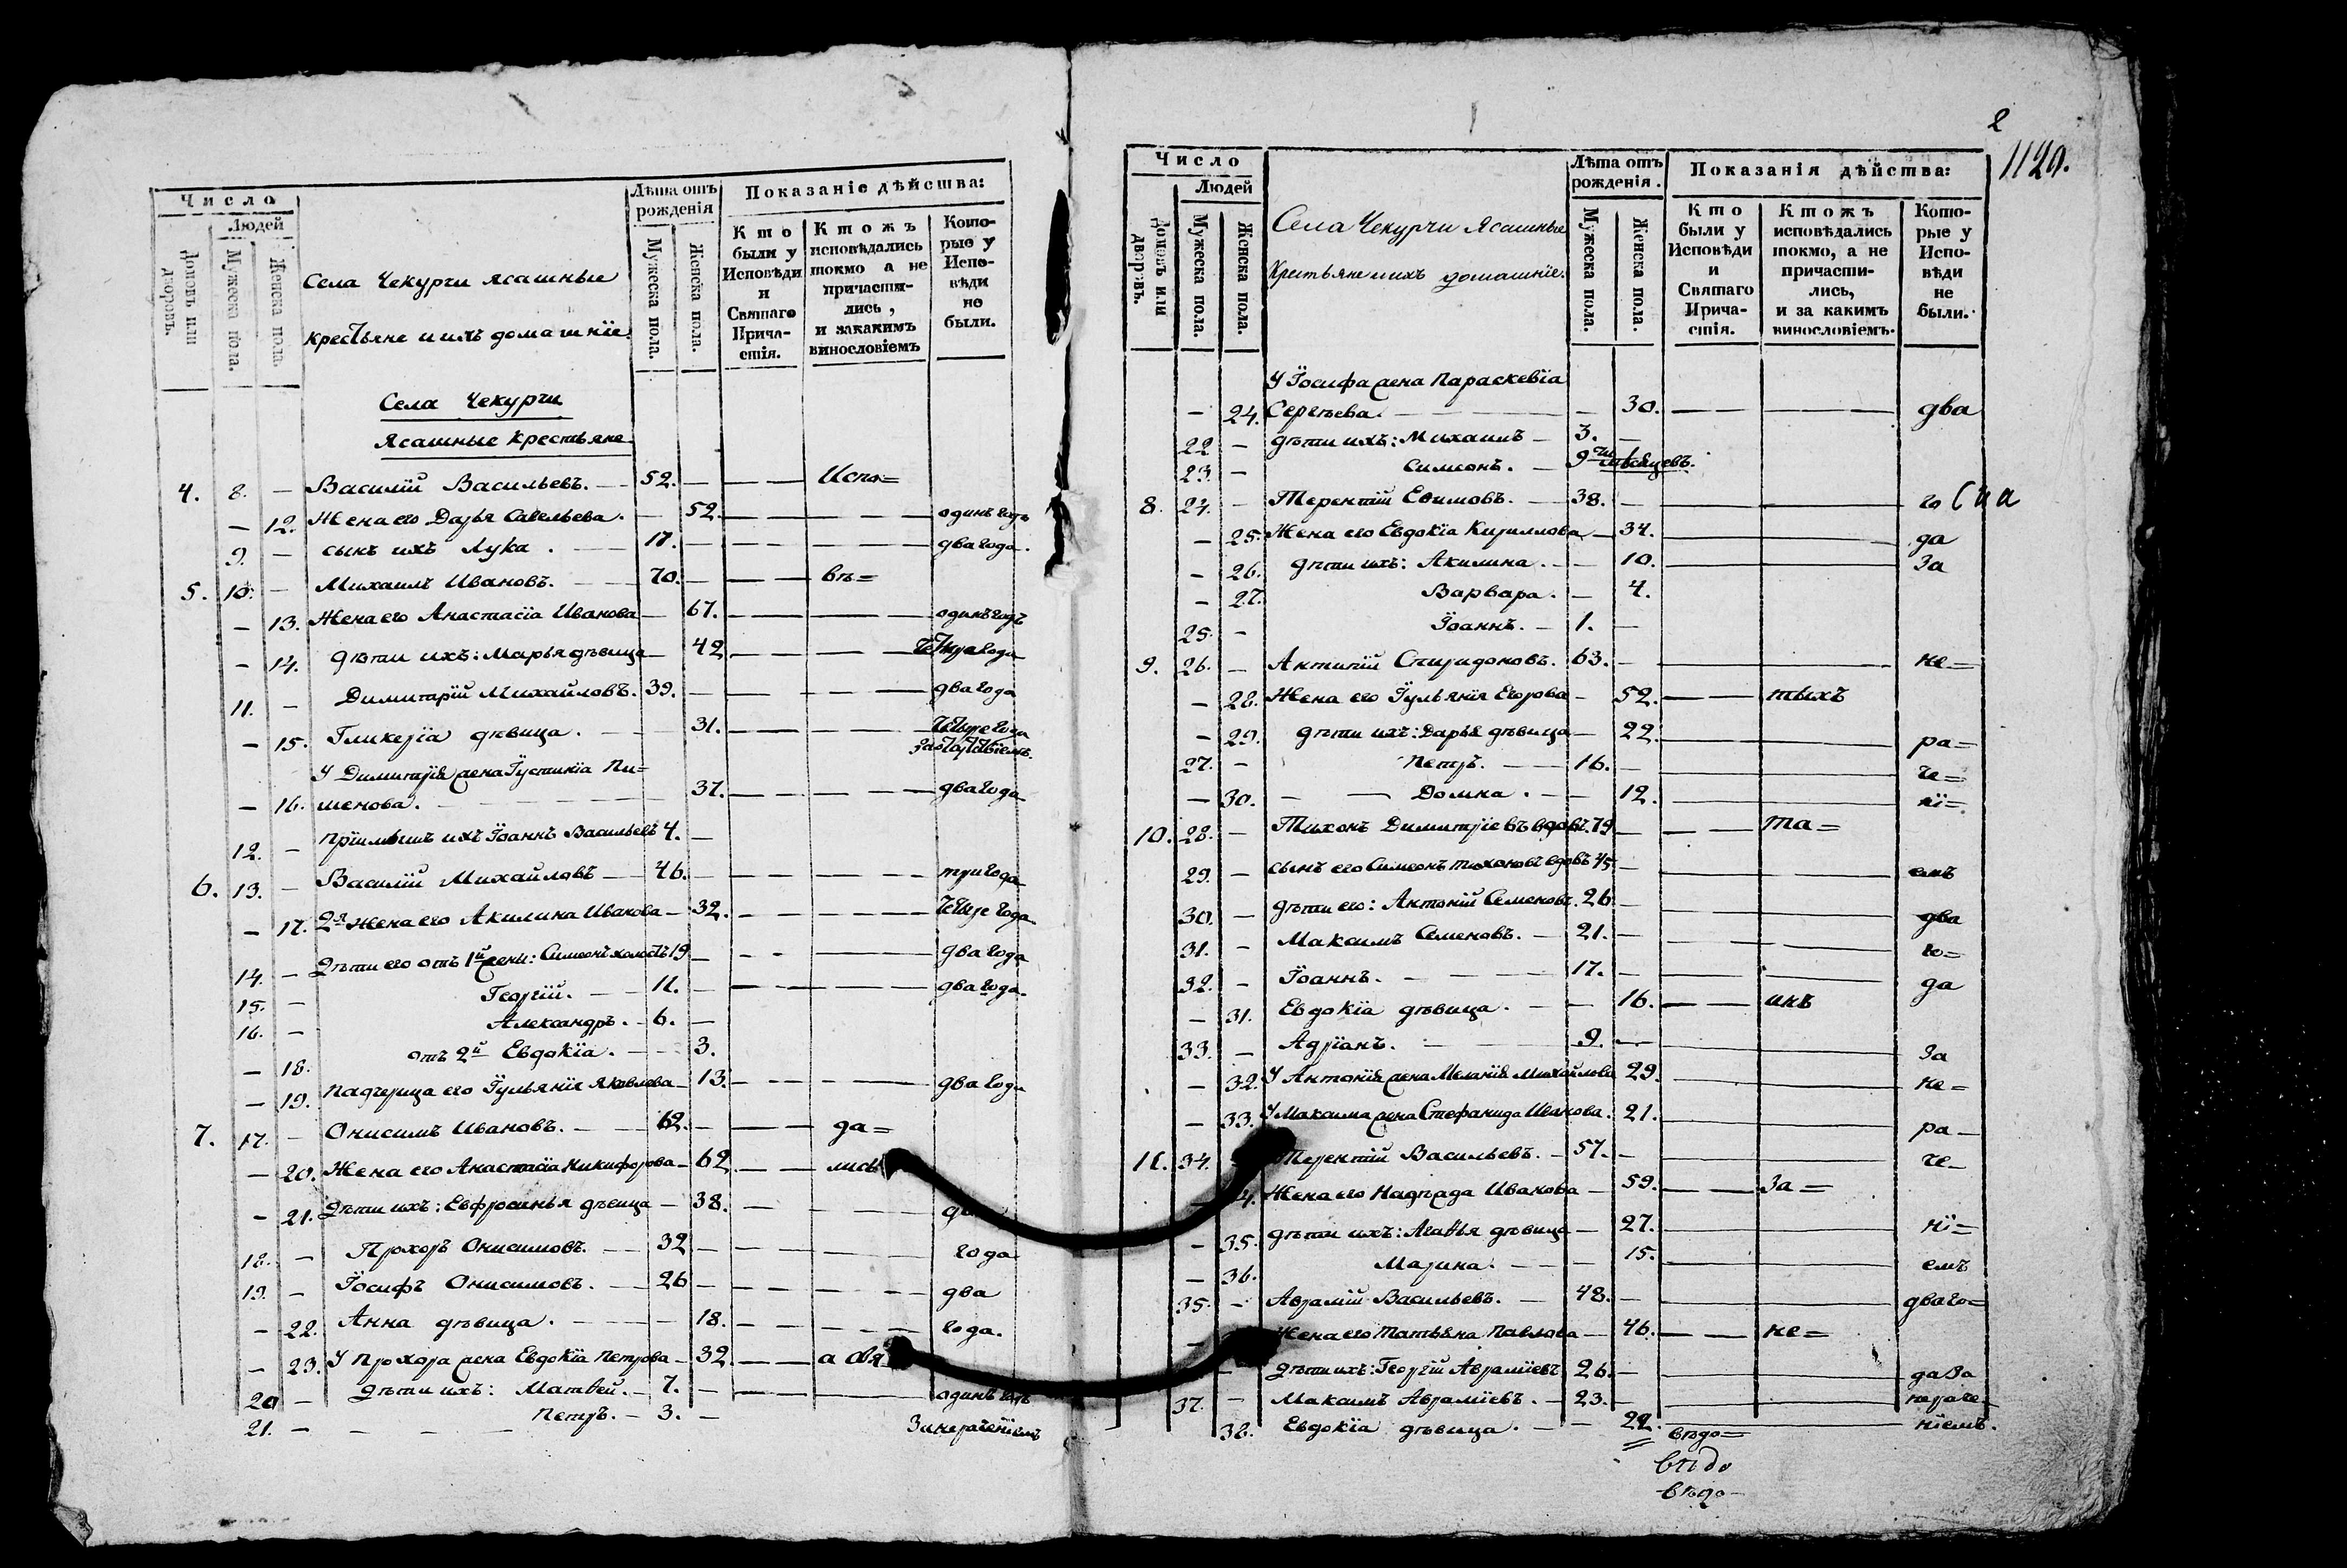 Число
Людей
Домовъ или дворовъ.
Мужеска пола.
Женска пола.
Села Чекурчи ясашные
крестьяне и ихъ домашніе.
Лѣта отъ рожденія
Мужеска пола.
Женска пола.
Показаніе дѣйства:
Кто были у Исповѣди и Святаго Причастія.
Ктожъ исповѣдались токмо а не причастились, и закакимъ винословіемъ
Которые у Исповѣди не были.
Села Чекурчи
Ясашные крестьяне
4. 8. — Василій Васильевъ. — 52. — — — Испо=
— 12. Жена его Дарья Савельева. — 52. — — — одинъ годъ
9. — сынъ ихъ Лука. — 17. — — — два года.
5. 10. — Михаилъ Ивановъ. — 70. — — — вѣ=
— 13. Жена его Анастасіа Иванова — 67. — — — одинъ годъ
— 14. дѣти ихъ: Марья дѣвица — 42 — — — четыре года
11. — Димитрій Михайловъ. 39. — — — два года
— 15. Гликеріа дѣвица. — 31. — — — четыре года
за отсутствіемъ.
У Димитріа жена Іустиніа Пи=
— 16. менова. — 37. — — — два года
12. — пріимышъ ихъ Іоаннъ Васильевъ 4. —
6. 13. — Василій Михайловъ — 46. — — — три года
— 17. 2я жена его Акилина Иванова — 32. — — — четыре года
14. — Дѣти его отъ 1й жены: Симеонъ холостъ 19 — — — два года
15. — Георгій. — 11. — — — два года.
16. — Александръ. — 6. —
— 18. отъ 2й Евдокіа. — 3.
— 19. падчерица его Іульяніа Яковлева — 13. — — — два года
7. 17. — Онисимъ Ивановъ. — 62. — — — да=
— 20. Жена его Анастасіа Никифорова — 62. — — лись
— 21. Дѣти ихъ: Евфросинья дѣвица — 38. — — —
18. — Прохоръ Онисимовъ. — 32 — — — года
19. — Іосифъ Онисимовъ. — 26 — — — два
— 22. Анна дѣвица. — 18. — — — года.
— 23. У Прохора жена Евдокіа Петрова — 32 — — а свя
20 — Дѣти ихъ: Матвей. — 7. — — — одинъ годъ
21. — Петръ. — 3. — За нераченіемъ
2
1120.
Число
Людей
Домовъ или дворовъ.
Мужеска пола.
Женска пола.
Села Чекурчи Ясашные
Крестьяне и ихъ домашніе.
Лѣта отъ рожденія.
Мужеска пола.
Женска пола.
Показанія дѣйства:
Кто были у Исповѣди и Святаго Причастія.
Ктожъ исповѣдались токмо, а не причастились, и за какимъ винословіемъ.
Которые у Исповѣди не были.
У Іосифа жена Параскевіа
— 24. Сергѣева. — — 30. — — — два
22 — дѣти ихъ: Михаилъ — 3. —
23. — Симеонъ. — 9ти мѣсяцевъ.
8. 24. — Терентій Ефимовъ. — 38. — — — го
— 25. Жена его Евдокіа Кириллова — 34. — — да
— 26. дѣти ихъ: Акилина. — 10. — — За
— 27. Варвара. — 4.
25. — Іоаннъ. — 1. —
9. 26. — Антипій Спиридоновъ. 63. — — — не=
— 28. Жена его Іульяніа Егорова — 52. — — тыхъ
— 29. дѣти ихъ: Дарья дѣвица — 22. — — ра=
27. — Петръ. — 16. — — — че=
— 30. — Домна. — 12. — — ні=
10. 28. — Тихонъ Димитріевъ вдовъ. 79 — — — та=
29. — сынъ его Симеонъ Тихоновъ вдовъ 45. — — — емъ
30. — дѣти его: Антоній Семеновъ. 26. — — — два
31. — Максимъ Семеновъ. — 21. — — — го=
32. — Іоаннъ. — 17. — — — да
— 31. Евдокіа дѣвица. — 16. — — инъ
33. — Адріанъ. — 9. — — — За
— 32. У Антоніа жена Меланіа Михайлова 29. — — не=
— 33. У Максима жена Стефанида Иванова. 21. — — ра—
11. 34. Терентій Васильевъ. — 57. — — — че—
Жена его Надежда Иванова — 59. — — За=
— 35. дѣти ихъ: Агафья дѣвица — 27. — — ні=
— 36. Марина. — 15. — — емъ
35. — Аврамій Васильевъ. — 48. — — — два го=
— Жена его Татьяна Павлова — 46. — — не=
Дѣти ихъ: Георгій Авраміевъ 26. — — — да За
37. — Максимъ Авраміевъ. — 23. — — — нераче—
38. Евдокіа дѣвица. — 22. — — ніемъ.
вѣдо=
вѣдо
вѣдо